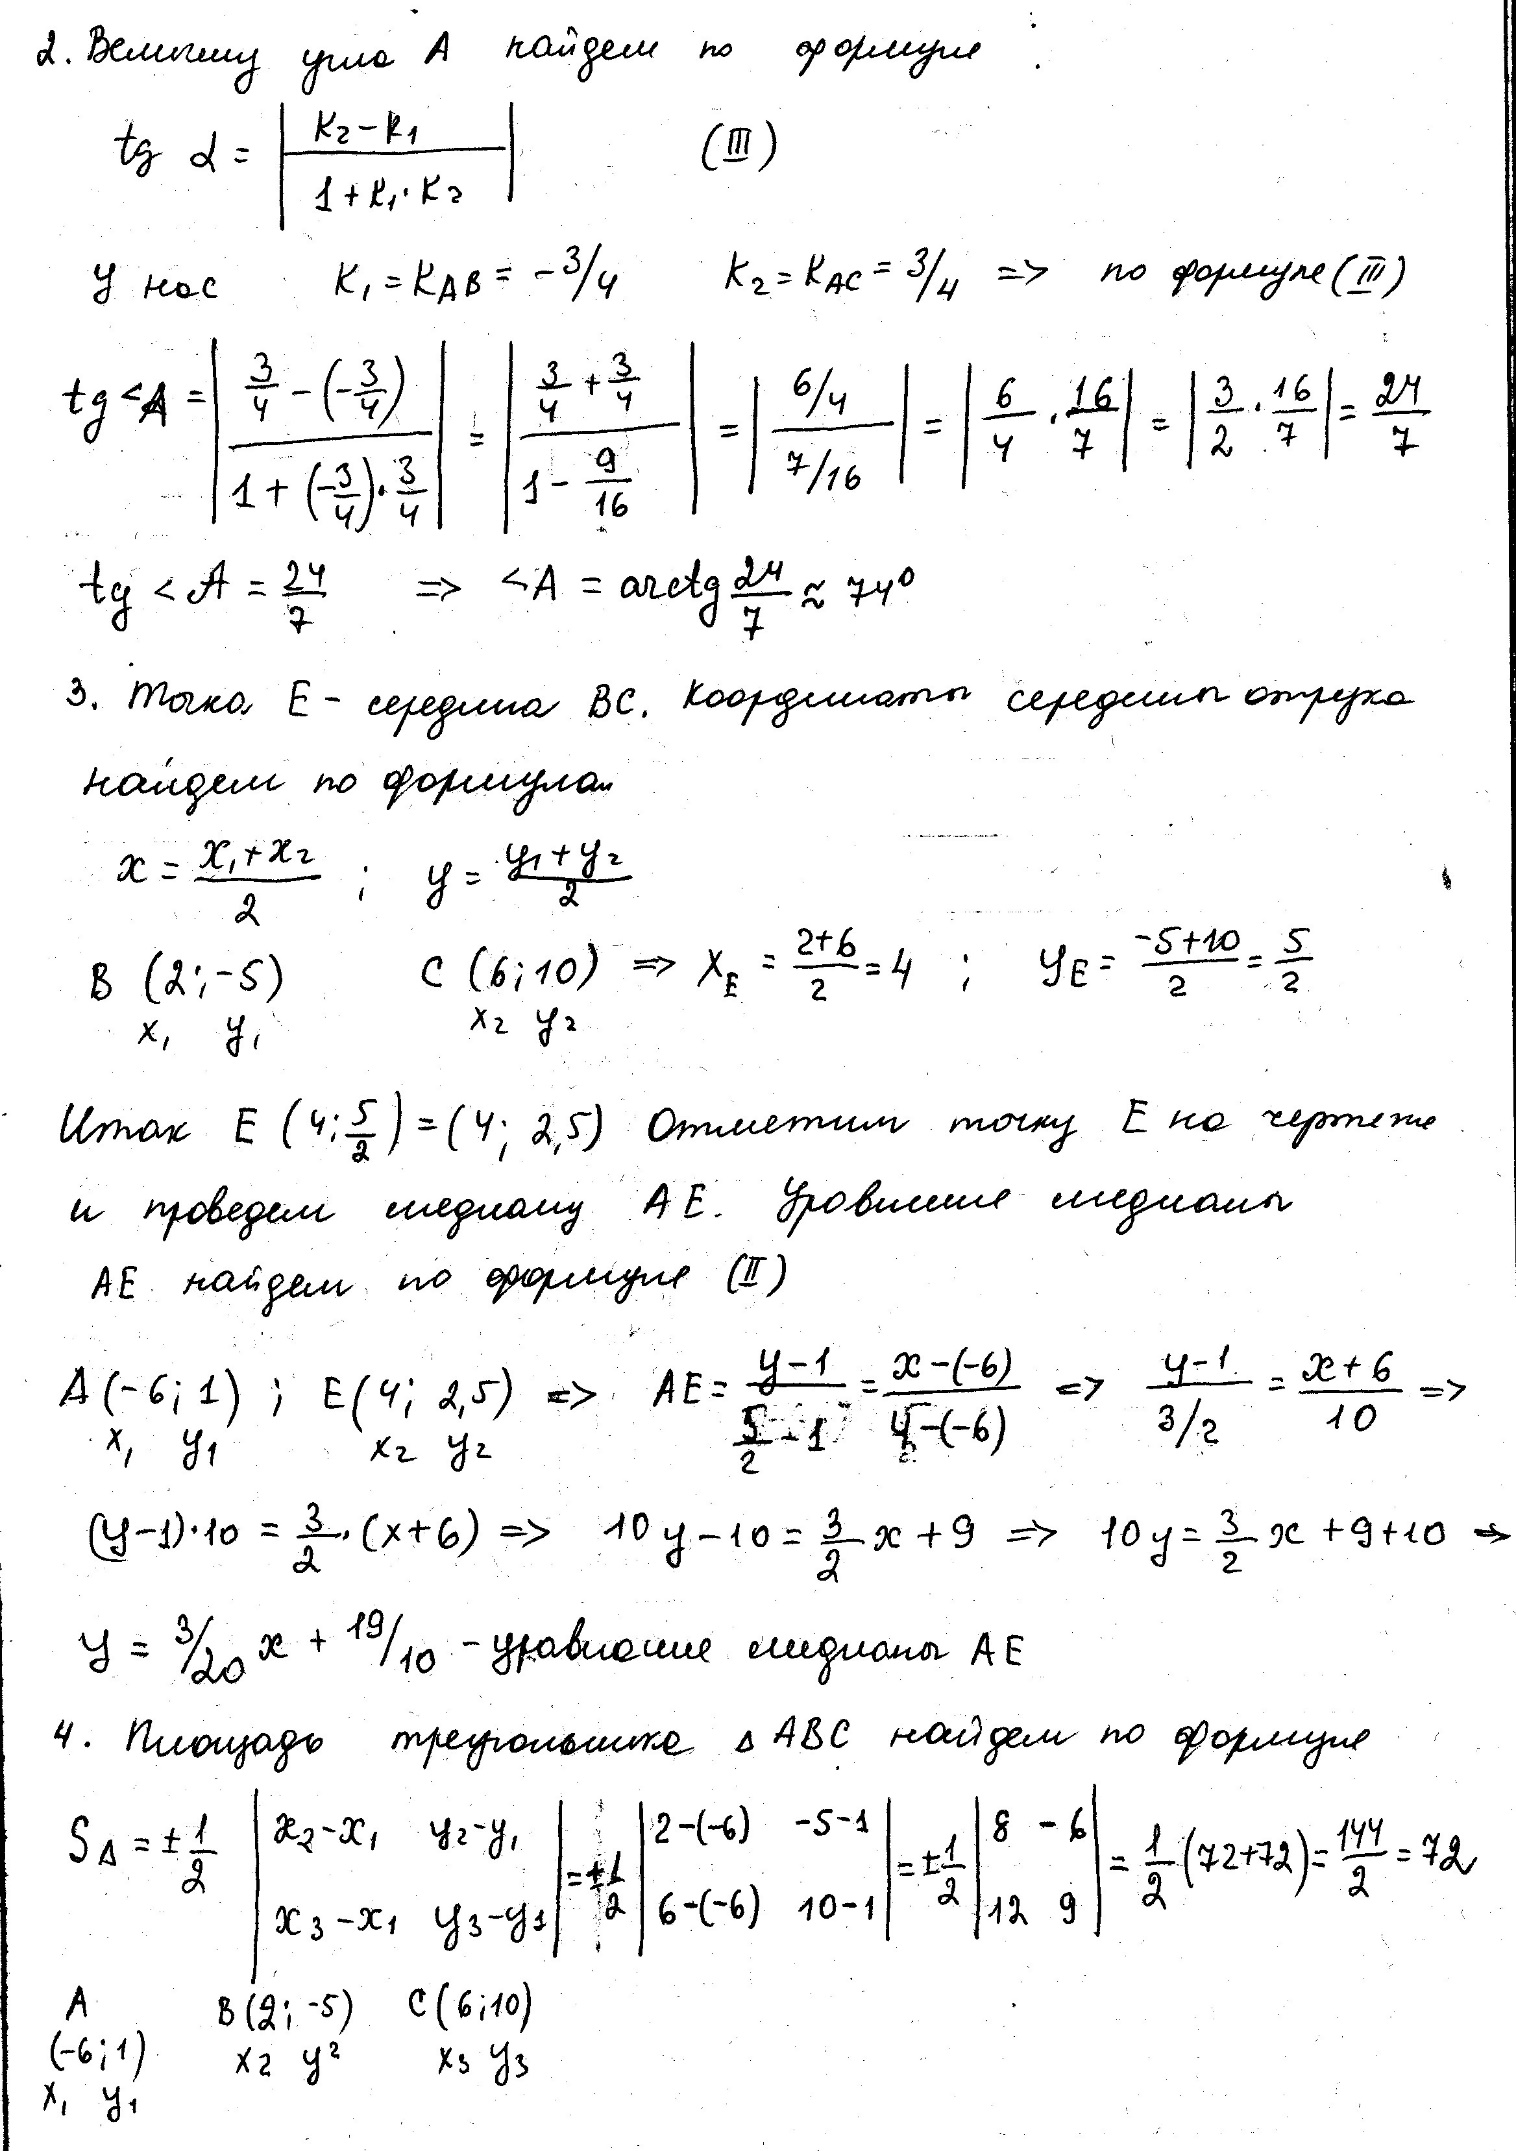 2. Величину угла A найдем по формуле :
tg α = |(K₂-K₁)/(1+K₁·K₂)| (III)
У нас K₁=K_AB = -3/4 K₂=K_AC = 3/4 => по формуле (III)
tg <A = |(3/4 - (-3/4))/(1+(-3/4)·3/4)| = |(3/4 + 3/4)/(1 - 9/16)| = |(6/4)/(7/16)| = |6/4 · 16/7| = |3/2 · 16/7| = 24/7
tg <A = 24/7 => <A = arctg 24/7 ≈ 74°
3. Точка E - середина BC. Координаты середины отрезка
найдем по формулам
x = (x₁+x₂)/2 ; y = (y₁+y₂)/2
B (2;-5) C (6;10) => X_E = (2+6)/2 = 4 ; y_E = (-5+10)/2 = 5/2
x₁ y₁ x₂ y₂
Итак E (4; 5/2) = (4; 2,5) Отметим точку E на чертеже
и проведем медиану AE. Уравнение медианы
AE найдем по формуле (II)
A (-6;1) ; E(4; 2,5) => AE = (y-1)/(5/2 - 1) = (x-(-6))/(4-(-6)) => (y-1)/(3/2) = (x+6)/10 =>
x₁ y₁ x₂ y₂
(y-1)·10 = 3/2·(x+6) => 10y-10 = 3/2 x + 9 => 10y = 3/2 x + 9+10 =>
y = 3/20 x + 19/10 - уравнение медианы AE
4. Площадь треугольника △ ABC найдем по формуле
S△ = ±1/2 |x₂-x₁ y₂-y₁; x₃-x₁ y₃-y₁| = ±1/2 |2-(-6) -5-1; 6-(-6) 10-1| = ±1/2 |8 -6; 12 9| = 1/2 (72+72) = 144/2 = 72
A B(2; -5) C(6;10)
(-6;1) x₂ y² x₃ y₃
x₁ y₁